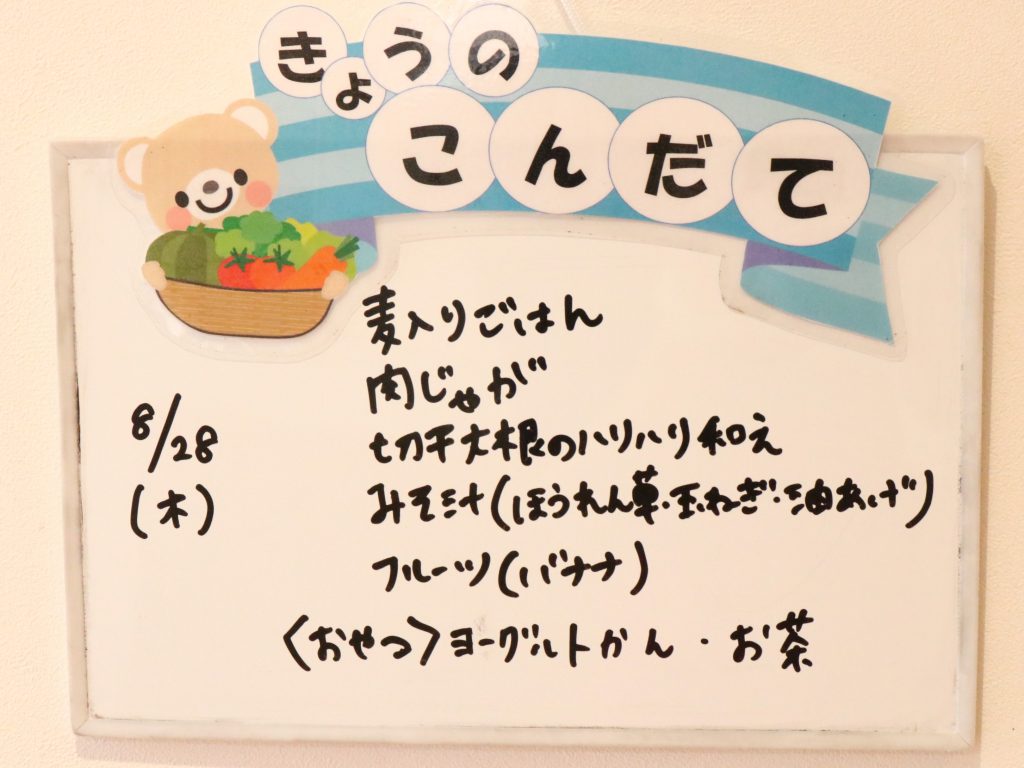 きょうの
こんだて
麦入りごはん
肉じゃが
8/28
(木)
切干大根のハリハリ和え
みそ汁(ほうれん草・玉ねぎ・油あげ)
フルーツ(バナナ)
〈おやつ〉ヨーグルトかん・お茶